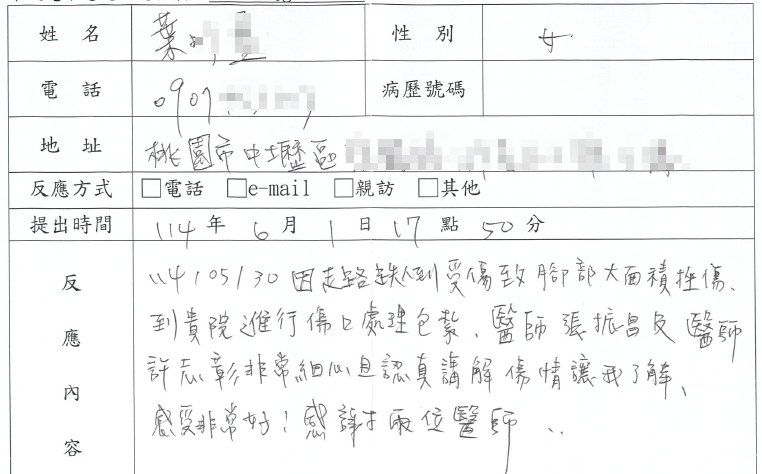 姓名 葉 性別 女
電話 0907 病歷號碼
地址 桃園市中壢區
反應方式 □電話 □e-mail □親訪 □其他
提出時間 114 年 6 月 1 日 17 點 50 分
反應內容
114/05/30因走路跌倒受傷致腳部大面積挫傷、
到貴院進行傷口處理包紮、醫師張振昌及醫師
許志彰非常細心且認真講解傷情讓我了解、
感受非常好!感謝兩位醫師